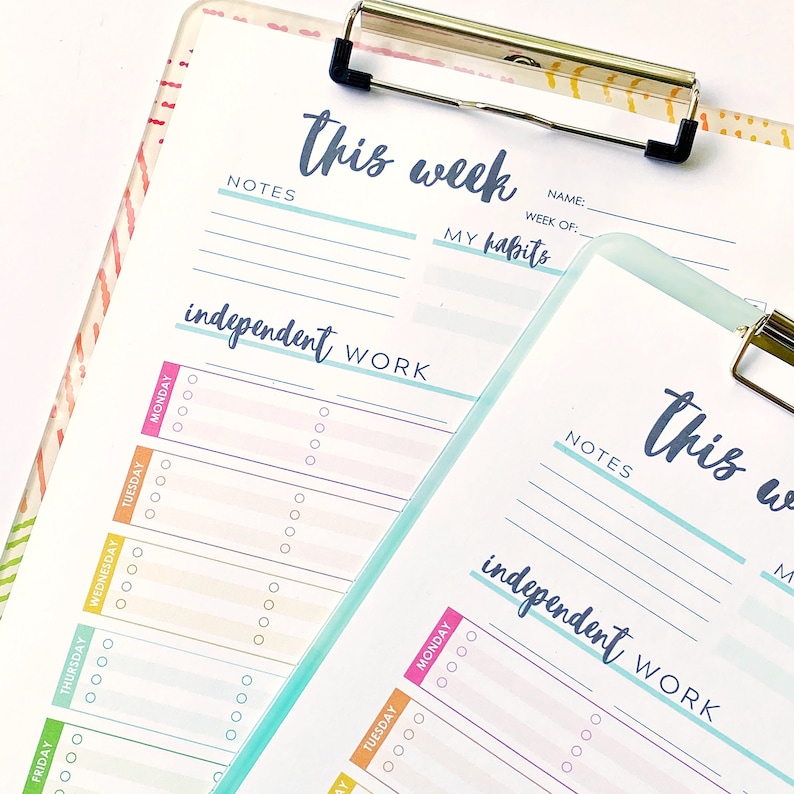 this week
NAME:
WEEK OF:
NOTES
MY habits
independent WORK
MONDAY
TUESDAY
WEDNESDAY
THURSDAY
FRIDAY
this
NOTES
independent WORK
MONDAY
TUESDAY